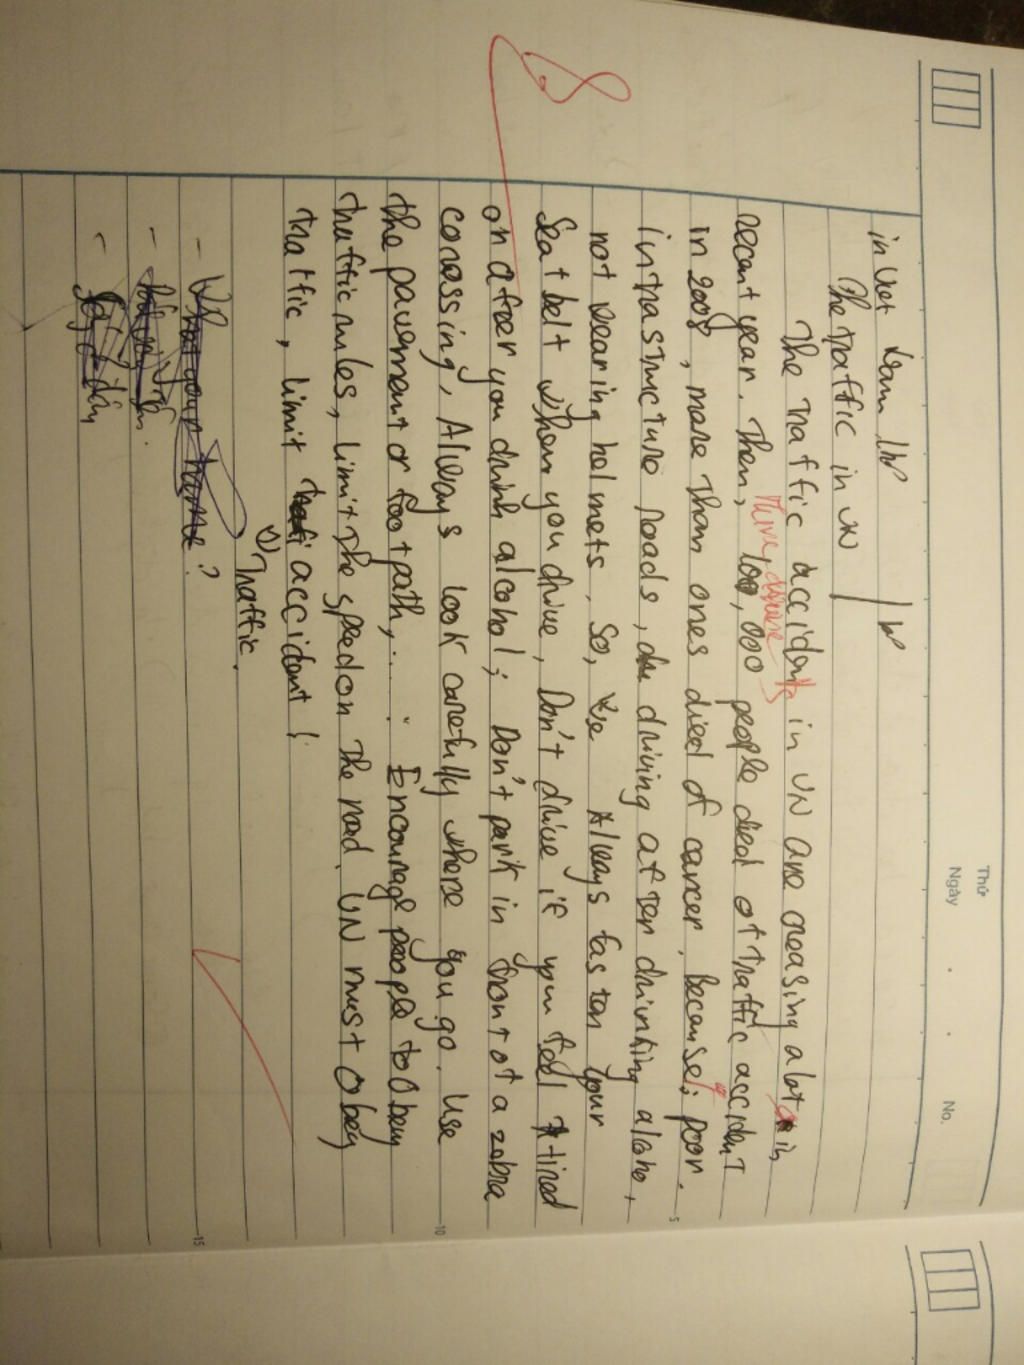 Thứ
Ngày . . No.
in Viet Nam
The traffic in VN
The traffic accidents in VN are creasing a lot in
There, disease
recent year. Then, 100,000 people died of traffic accident
in 2008, more than ones died of cancer, because; poor.
intrastructure roads, driving after drinking alcoho,
not wearing helmets. So, we Always fasten your
Seat belt when you drive, Don't drive if you feel tired
on after you drink alcohol; Don't park in front of a zebra
conessing, Always look carefully where you go. Use
the pavement or foot path,... Encourage people to Obey
traffic rules, limit the speed on the road. VN must Obey
traffic, limit accident !
Traffic.
- What your name ?
-
-
8
5
10
15